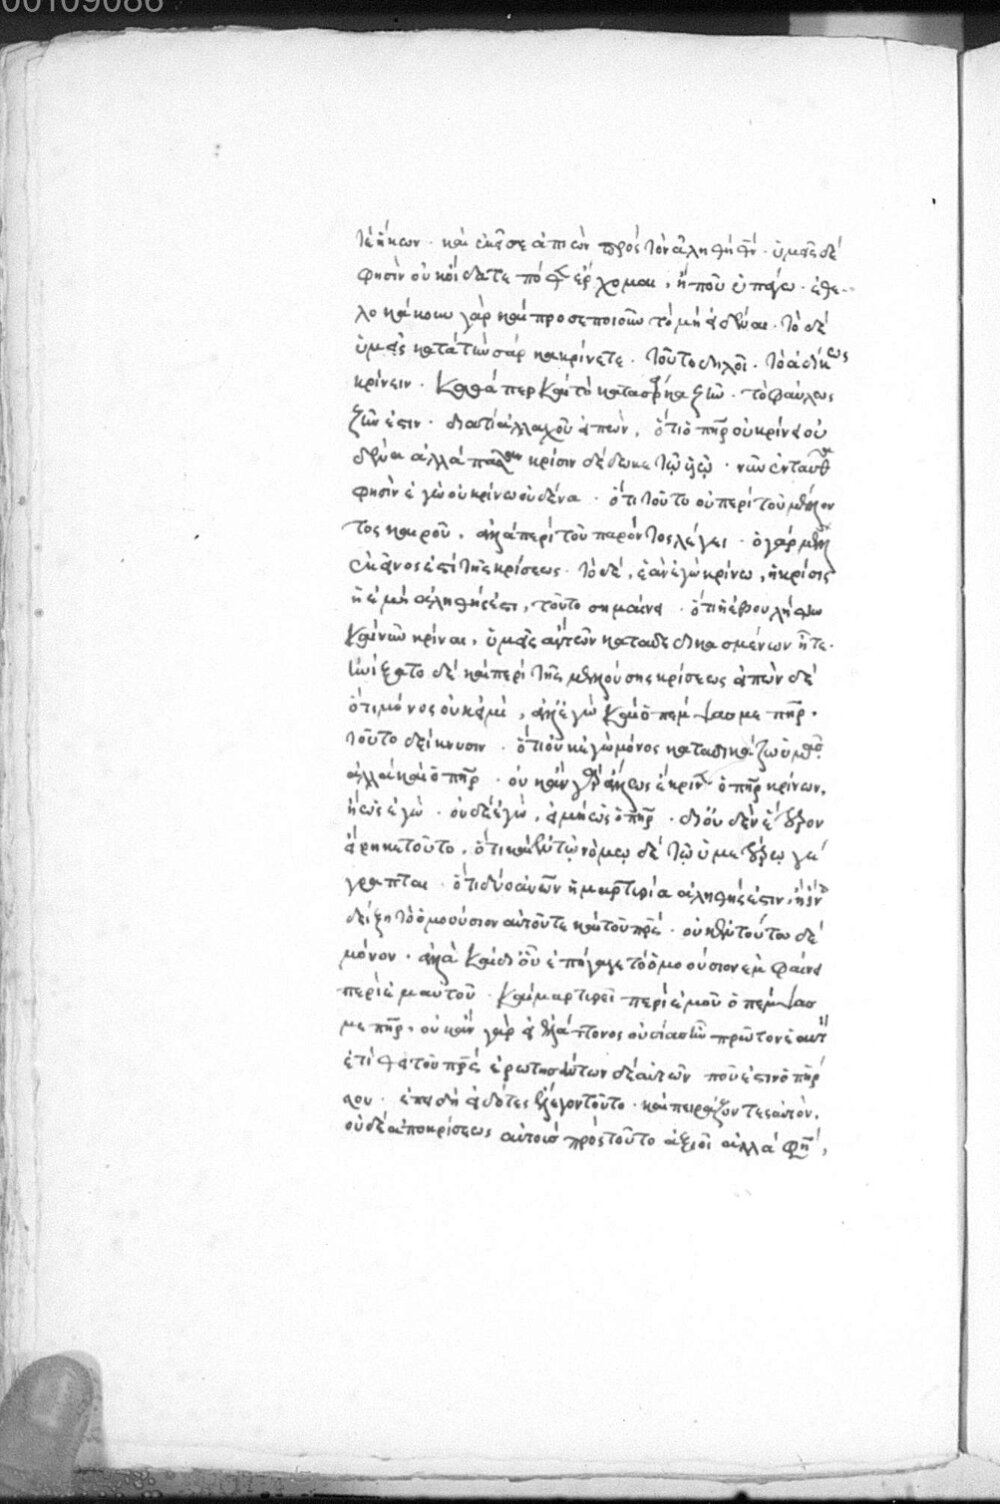 00109086
τε ἥκων · καὶ ἐκεῖσε ἀπιὼν πρὸς τὸν ἀληθῆ θν · ὑμεῖς δέ
φησιν οὐκ οἴδατε πόθεν ἔρχομαι, ἢ ποῦ ὑπάγω · ἐθε-
λοκάκουν γὰρ καὶ προσεποιοῦντο μὴ εἰδέναι · τὸ δέ
ὑμεῖς κατὰ τὴν σάρκα κρίνετε · τοῦτο δηλοῖ · τὸ ἀδίκως
κρίνειν · καθάπερ καὶ τὸ κατὰ σάρκα ζῆν · τὸ φαύλως
ζῆν ἐστιν · διατί ἀλλαχοῦ εἰπών, ὅτι ὁ πηρ οὐ κρίνει οὐ
δένα ἀλλὰ πᾶσαν κρίσιν δέδωκε τῷ υἱῷ · νῦν ἐνταῦθα
φησὶν ἐγὼ οὐ κρίνω οὐδένα · ὅτι τοῦτο οὐ περὶ τοῦ μέλλον
τος καιροῦ, ἀλλὰ περὶ τοῦ παρόντος λέγει · ὁ γὰρ μέλλων
ἐκεῖνος ἐστὶ τῆς κρίσεως · τὸ δέ, ἐὰν ἐγὼ κρίνω, ἡ κρίσις
ἡ ἐμὴ ἀληθής ἐστι, τοῦτο σημαίνει · ὅτι εἰ ἐβουλήθην
καὶ νῦν κρῖναι, ὑμεῖς ἂν τῶν καταδεδικασμένων ἦτε ·
ᾐνίξατο δὲ καὶ περὶ τῆς μελλούσης κρίσεως εἰπὼν δέ
ὅτι μόνος οὐκ εἰμί, ἀλλ' ἐγὼ καὶ ὁ πέμψας με πηρ ·
τοῦτο δείκνυσιν · ὅτι οὐκ ἐγὼ μόνος καταδικάζω ὑμᾶς
ἀλλὰ καὶ ὁ πηρ · οὐκ ἂν γὰρ ἄλλως ἔκρινεν ὁ πηρ κρίνων,
ἢ ὡς ἐγὼ · οὐδὲ ἐγὼ, εἰ μὴ ὡς ὁ πηρ · διὸ
εἴρηκε τοῦτο, ὅτι καὶ ἐν τῷ νόμῳ δὲ τῷ ὑμετέρῳ γέ
γραπται · ὅτι δύο ἀνων ἡ μαρτυρία ἀληθής ἐστιν, ἵν
δείξῃ τὸ ὁμοούσιον αὐτοῦ τε καὶ τοῦ πρς · οὐκ ἐν τούτω δέ
μόνον · ἀλλὰ καὶ δι' οὗ ἐπήγαγε τὸ ὁμοούσιον ἐμφαίνει
περὶ ἐμαυτοῦ · καὶ μαρτυρεῖ περὶ ἐμοῦ ὁ πέμψας
με πηρ · οὐκ ἂν γὰρ εἰ ἐλάττονος οὐσίας ἦν πρῶτον ἑαυτ
ἐτίθει τοῦ πρς ἐρωτησάντων δὲ αὐτῶν ποῦ ἐστιν ὁ πηρ
σου · ἐπειδὴ εἰδότες ἔλεγον τοῦτο · καὶ πειράζοντες αὐτόν,
οὐδὲ ἀποκρίσεως αὐτοὺς πρὸς τοῦτο ἀξιοῖ ἀλλὰ φη,